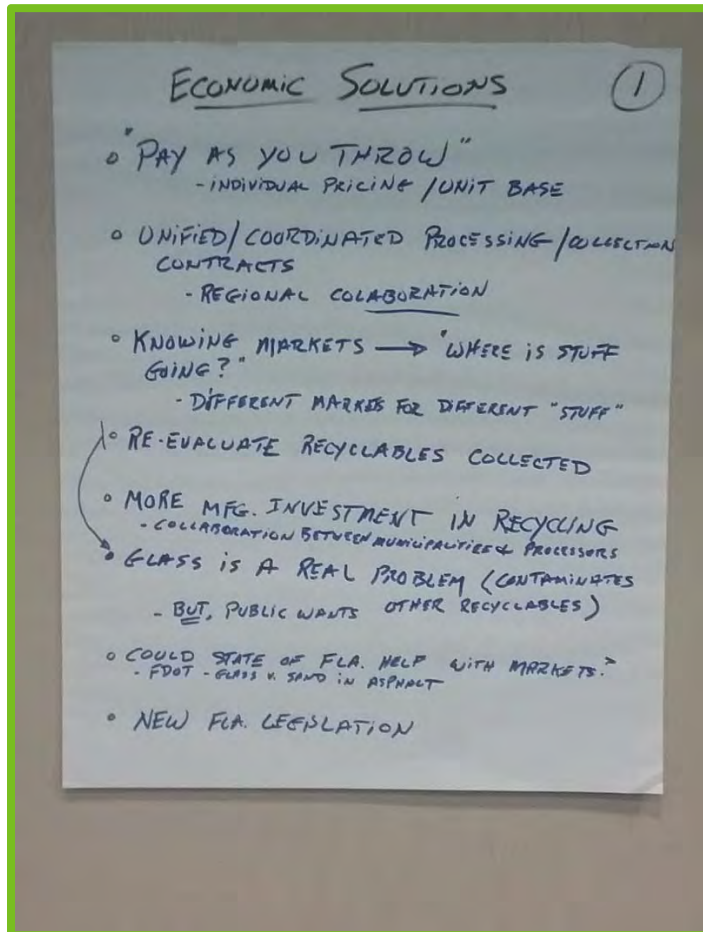 ECONOMIC SOLUTIONS
1
° "PAY AS YOU THROW"
- INDIVIDUAL PRICING / UNIT BASE
° UNIFIED / COORDINATED PROCESSING / COLLECTION
CONTRACTS
- REGIONAL COLABORATION
° KNOWING MARKETS → "WHERE IS STUFF
GOING?"
- DIFFERENT MARKETS FOR DIFFERENT "STUFF"
° RE-EVALUATE RECYCLABLES COLLECTED
° MORE MFG. INVESTMENT IN RECYCLING
- COLLABORATION BETWEEN MUNICIPALITIES & PROCESSORS
• GLASS IS A REAL PROBLEM (CONTAMINATES
- BUT, PUBLIC WANTS OTHER RECYCLABLES)
° COULD STATE OF FLA. HELP WITH MARKETS?
- FDOT - GLASS V. SAND IN ASPHALT
° NEW FLA. LEGISLATION